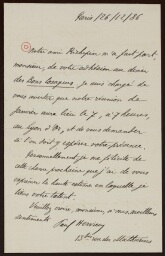 Paris / 26 / 12 / 86
Notre ami Richepin m'a fait part,
monsieur, de votre adhésion au dîner
des Bons Cosaques. Je suis chargé de
vous avertir que notre réunion de
Janvier aura lieu le 7, à 7 heures,
au Lyon d'Or, et de vous demander
si l'on doit y espérer votre présence.
Personnellement, je me félicite de
cette heure prochaine que j'ai de vous
exprimer la haute estime en laquelle je
tiens votre talent.
Veuillez croire, monsieur, à mes meilleurs
sentiments.
Paul Hervieu
rue des Mathurins